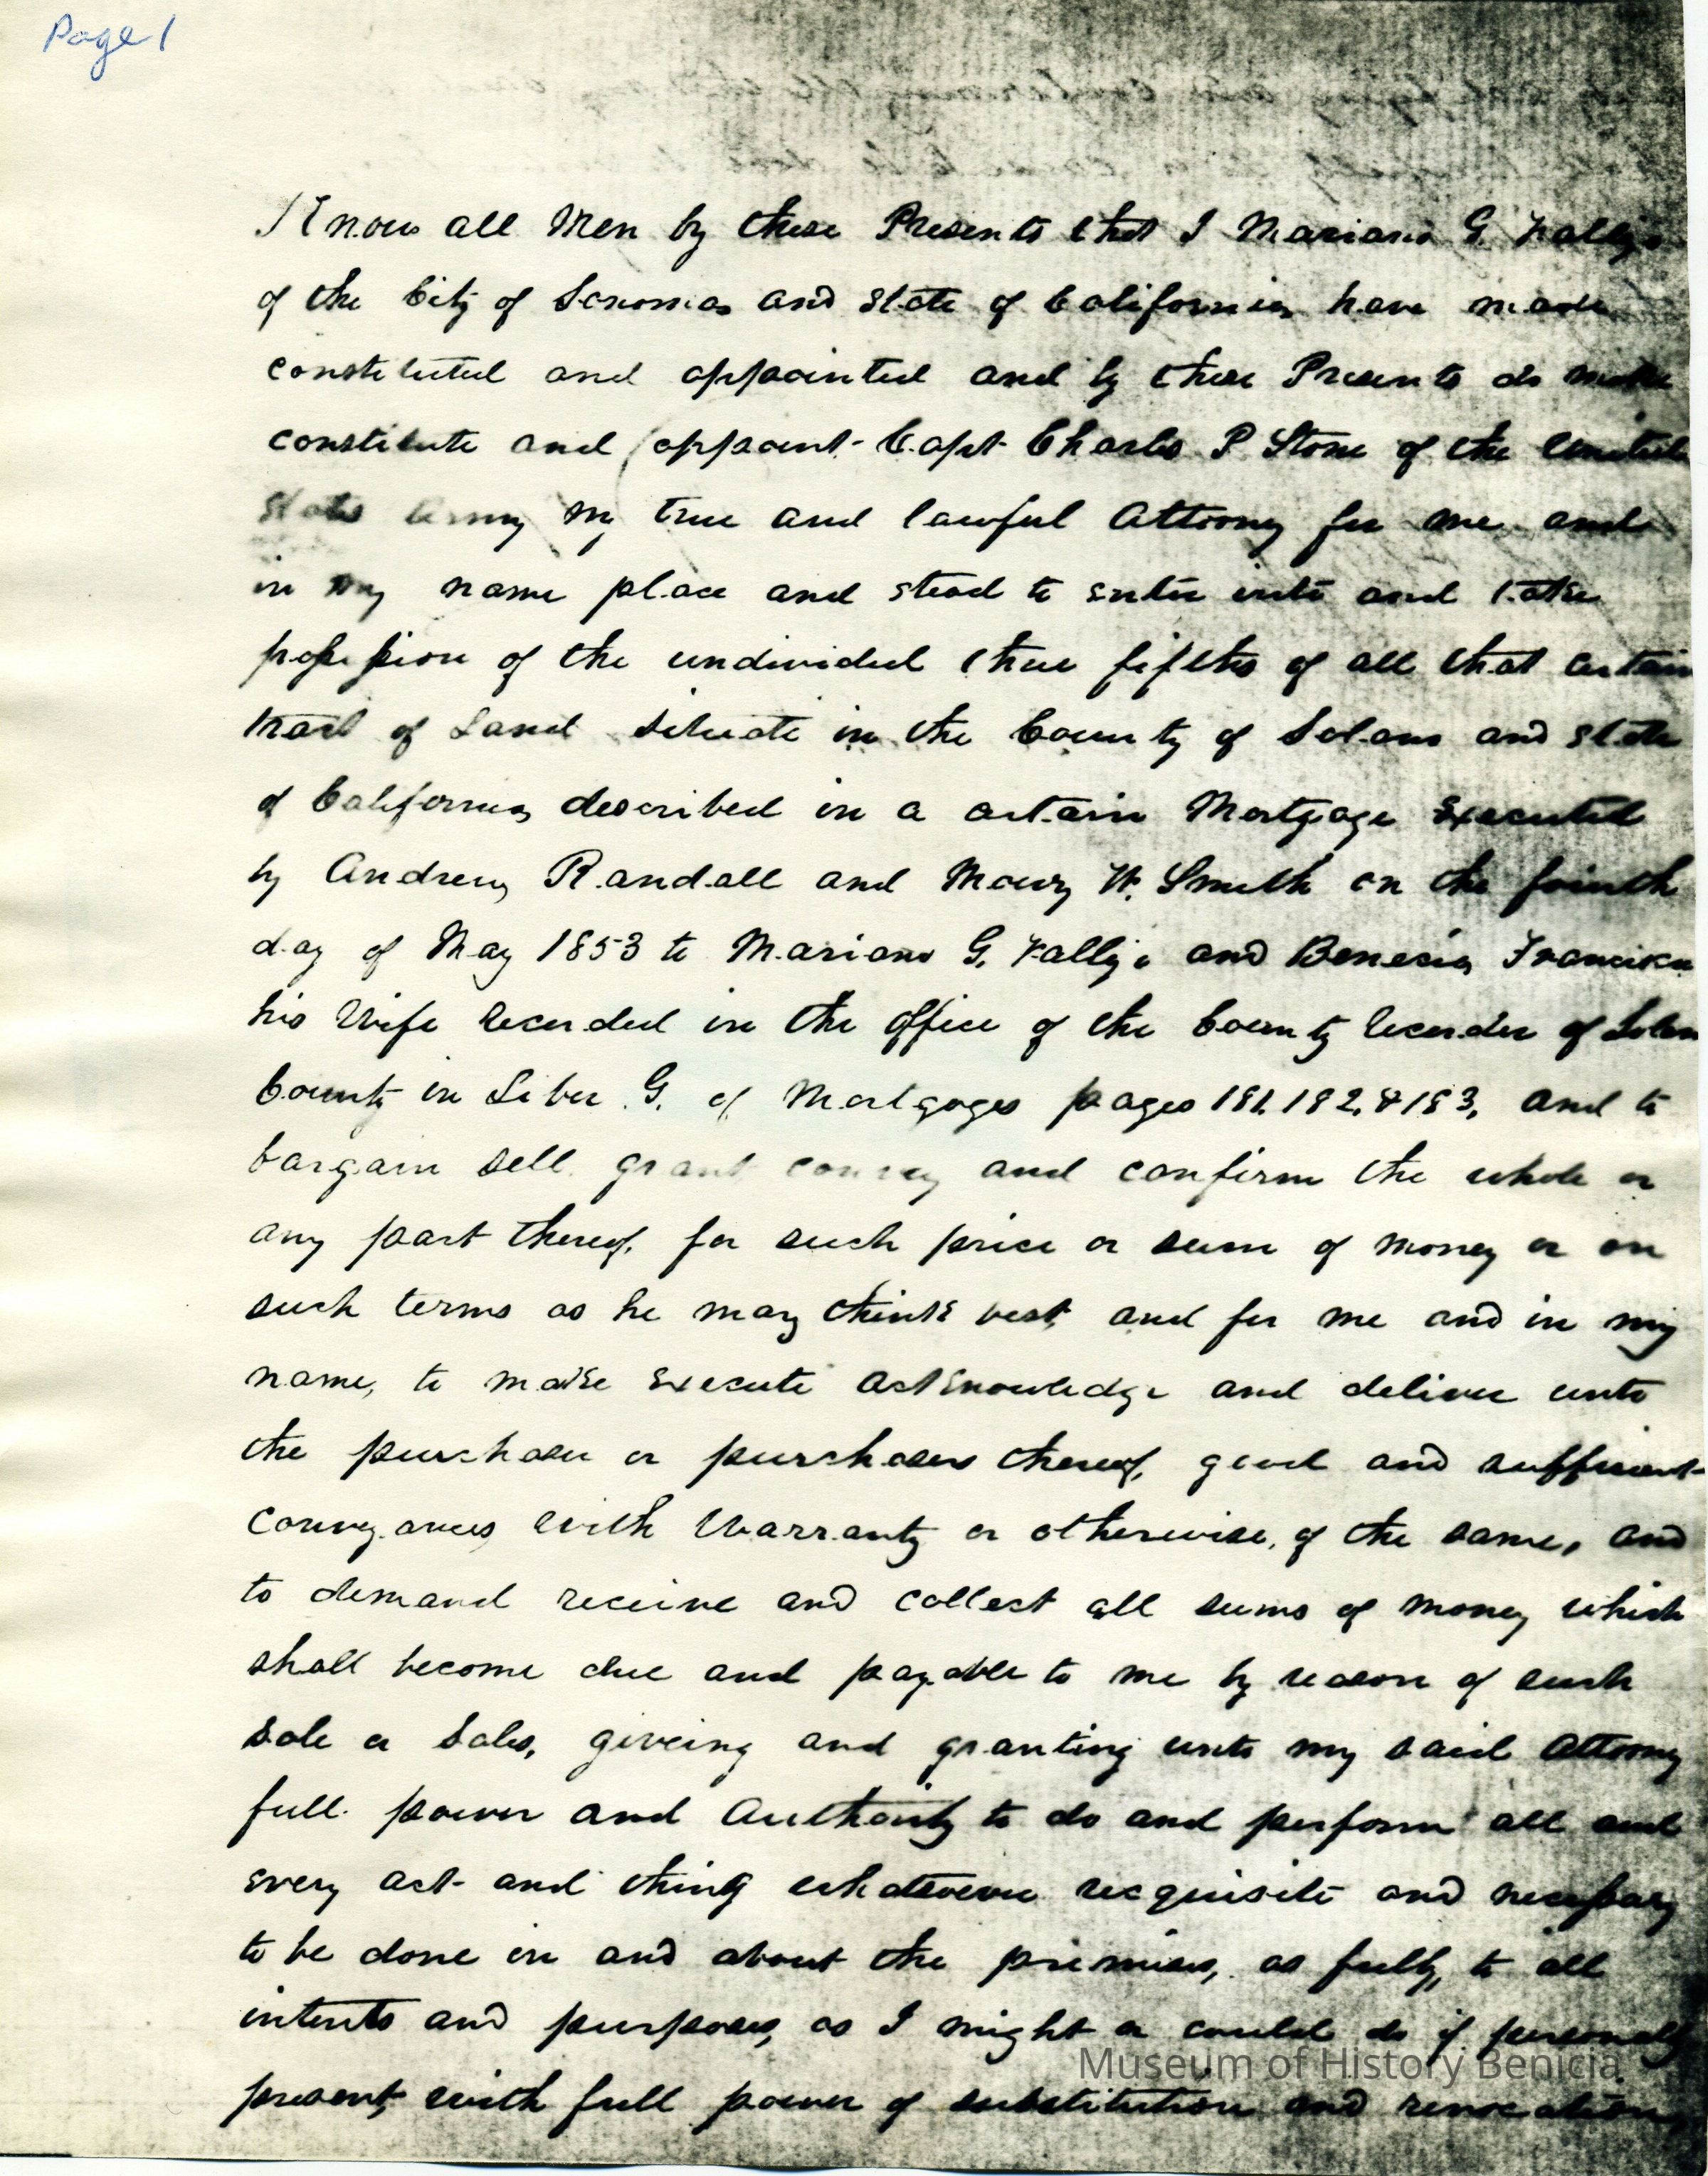 Page 1
Know all Men by these Presents that I Mariano G. Vallejo
of the City of Sonoma and State of California have made
constituted and appointed and by these Presents do make
constitute and appoint Capt Charles P Stone of the United
States Army my true and lawful Attorny for me and
in my name place and stead to enter into and take
possession of the undivided three fifths of all that certain
tract of Land situate in the County of Solano and State
of California described in a certain Mortgage executed
by Andrew Randall and Mowry W. Smith on the fourth
day of May 1853 to Mariano G. Vallejo and Benecia Francisca
his Wife recorded in the office of the County recorder of Solano
County in Liber G. of Mortgages pages 181, 182, & 183, and to
bargain sell grant convey and confirm the whole or
any part thereof, for such price or sum of money or on
such terms as he may think best, and for me and in my
name, to make execute acknowledge and deliver unto
the purchaser or purchasers thereof, good and sufficient
conveyances with Warranty or otherwise, of the same, and
to demand receive and collect all sums of money which
shall become due and payable to me by reason of such
sale or sales, giveing and granting unto my said Attorny
full power and Authority to do and perform all and
every act and thing whatevever requisite and necessary
to be done in and about the premises, as fully, to all
intents and purposes, as I might or could do if personally
present, with full power of substitution and revocation,
Museum of History Benicia